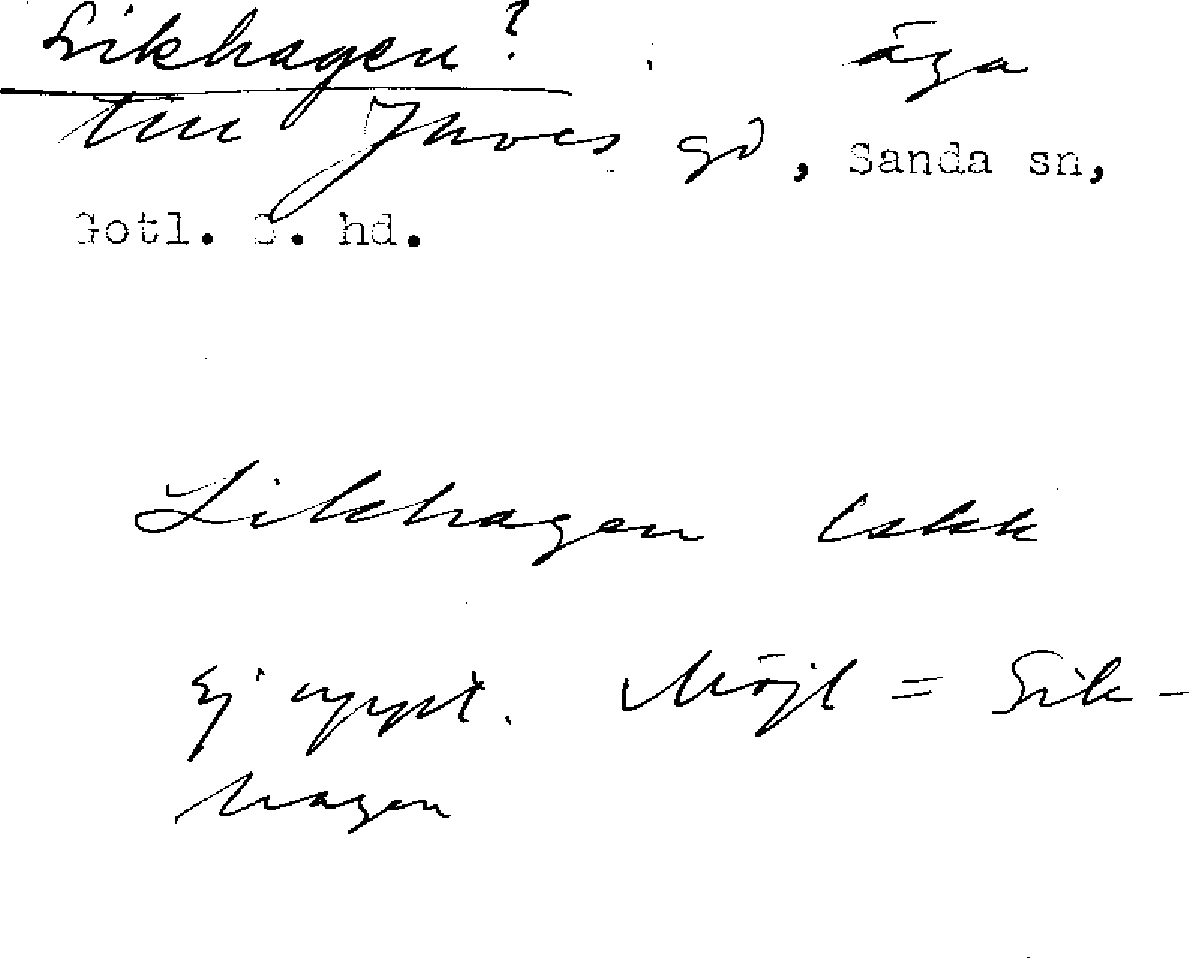 Likhagen? äga
till gd, Sanda sn,
Gotl. S. hd.
Likhagen lskk
Ej uppt. Möjl = Sik-
hagen